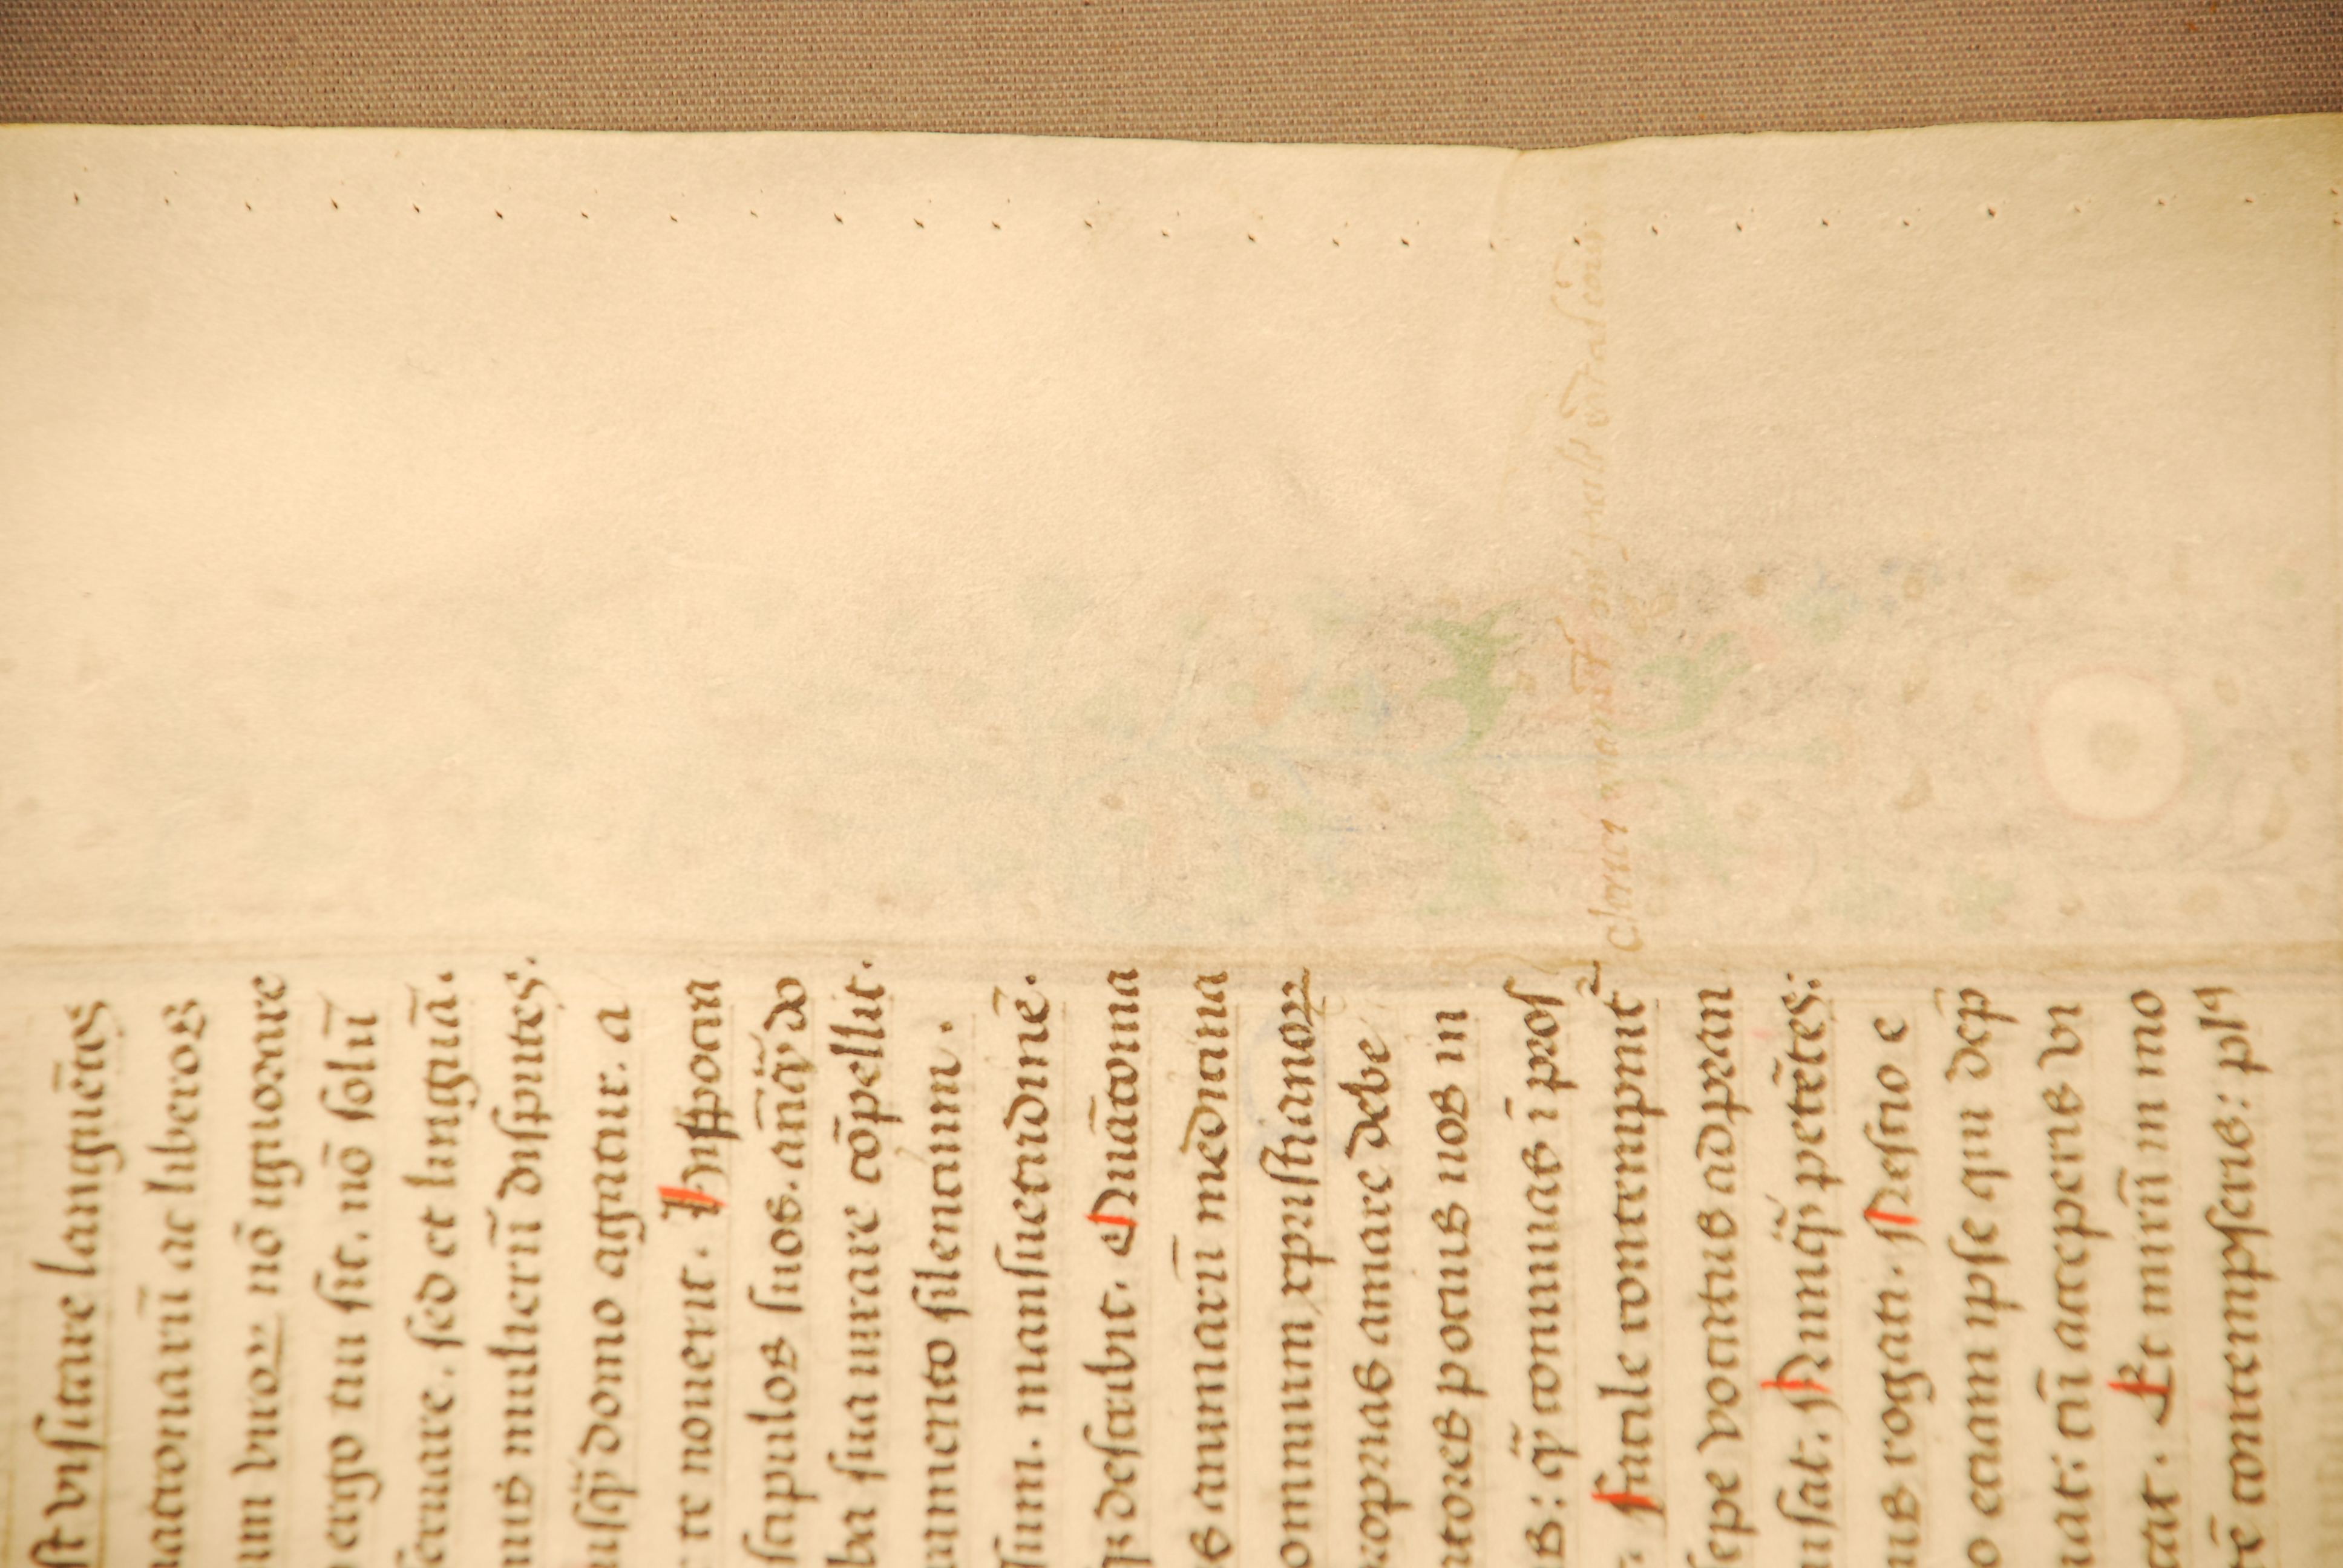 st visitare languētes
nationarū ac liberos
um viroꝝ nō ignorare
ergo tui sit. nō solū
seruare. sed et linguā.
nus mulierū disputes.
usq̄ domo agatur. a
te nouerit. Hippocra
scipulos suos. anq̄ do
ba sua iurare cōpellit.
ramento silentium.
sum. mansuetudinē.
describit. Quāto ma
s animarū medicina
omnium xpristianoꝝ
proprias amare debe
atores potius nos in
s: q̄ conuiuas ī pros
Clerici
facile contempnit᷑
sepe vocatus ad pran
usat. Nunq̄ petētes:
us rogati. Nescio e
o etiam ipse qui dep̄
uat: cū acceperis vi
rat. Et mirū in mo
ē contempseris: plꝰ